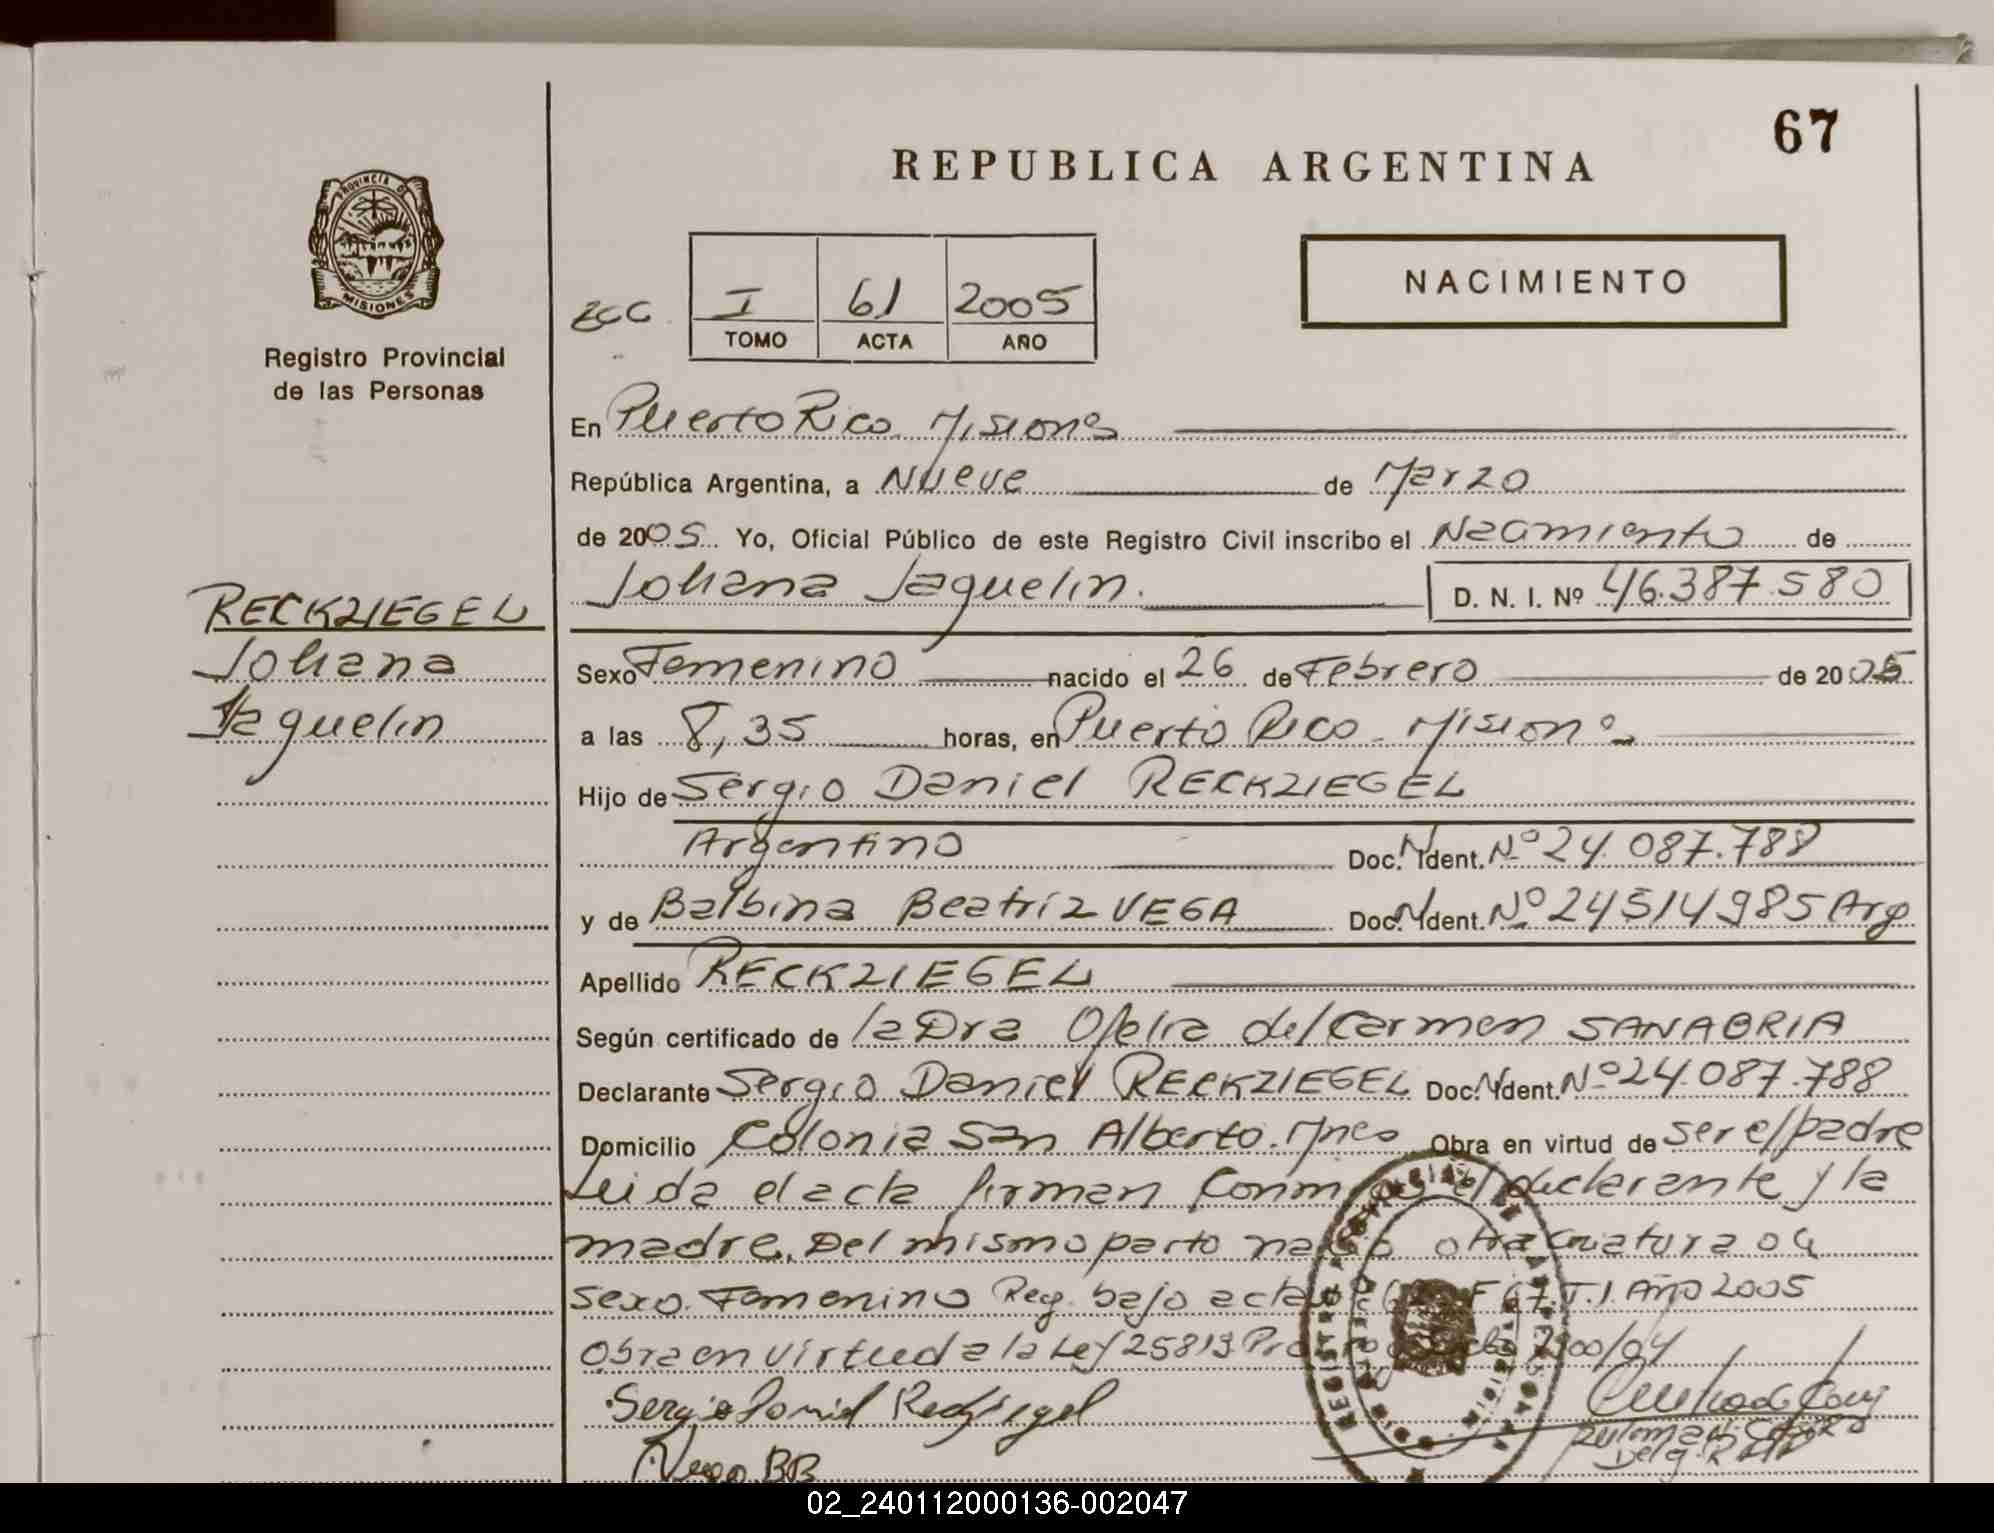 67
REPUBLICA ARGENTINA
PROVINCIA DE
MISIONES
Registro Provincial
de las Personas
I 61 2005
TOMO ACTA AÑO
NACIMIENTO
En Puerto Rico Misiones
República Argentina, a Nueve de Marzo
de 2005. Yo, Oficial Público de este Registro Civil inscribo el Nacimiento de
Johana Jaquelin. D. N. I. Nº 46.387.580
RECKZIEGEL
Johana
Jaquelin
Sexo Femenino nacido el 26 de Febrero de 2005
a las 8,35 horas, en Puerto Rico - Misiones
Hijo de Sergio Daniel RECKZIEGEL
Argentino Doc. N Ident. Nº 24.087.788
y de Balbina Beatriz VEGA Doc. N Ident. Nº 24514985 Arg
Apellido RECKZIEGEL
Según certificado de la Dra Ofelia del Carmen SANABRIA
Declarante Sergio Daniel RECKZIEGEL Doc. N Ident. Nº 24.087.788
Domicilio Colonia San Alberto. Mnes Obra en virtud de ser el padre
Leida el acta firman Conmigo el declarante y la
madre. Del mismo parto nacio otra criatura de
sexo Femenino Reg. bajo acta F 67. T. I. Año 2005
Obra en virtud a la Ley 25819 2900/04
Sergio Daniel Reckziegel
Vega BB
02_240112000136-002047